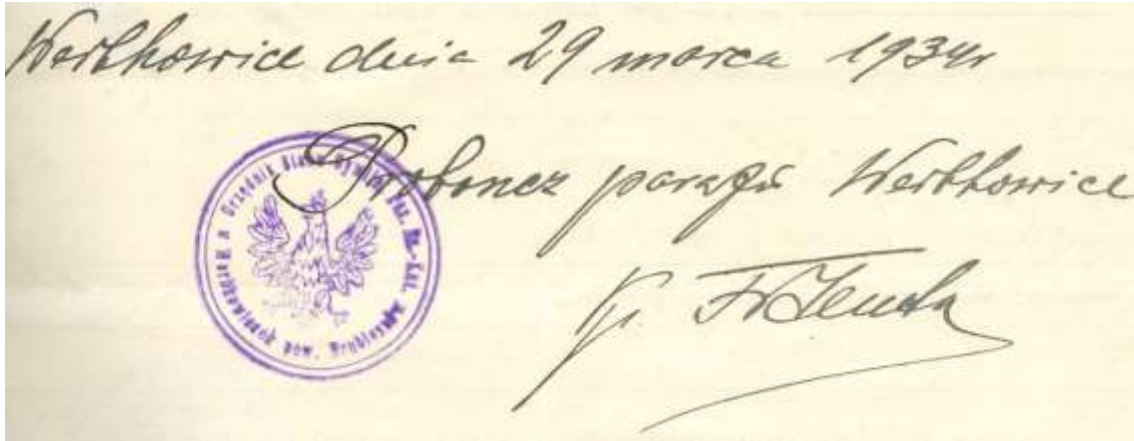 Werbkowice dnia 29 marca 1934r
Proboncz parafii Werbkowice
Urzędnik Stanu Cywilnego Par. Rz.-Kat. w Werbkowicach pow. Hrubieszów